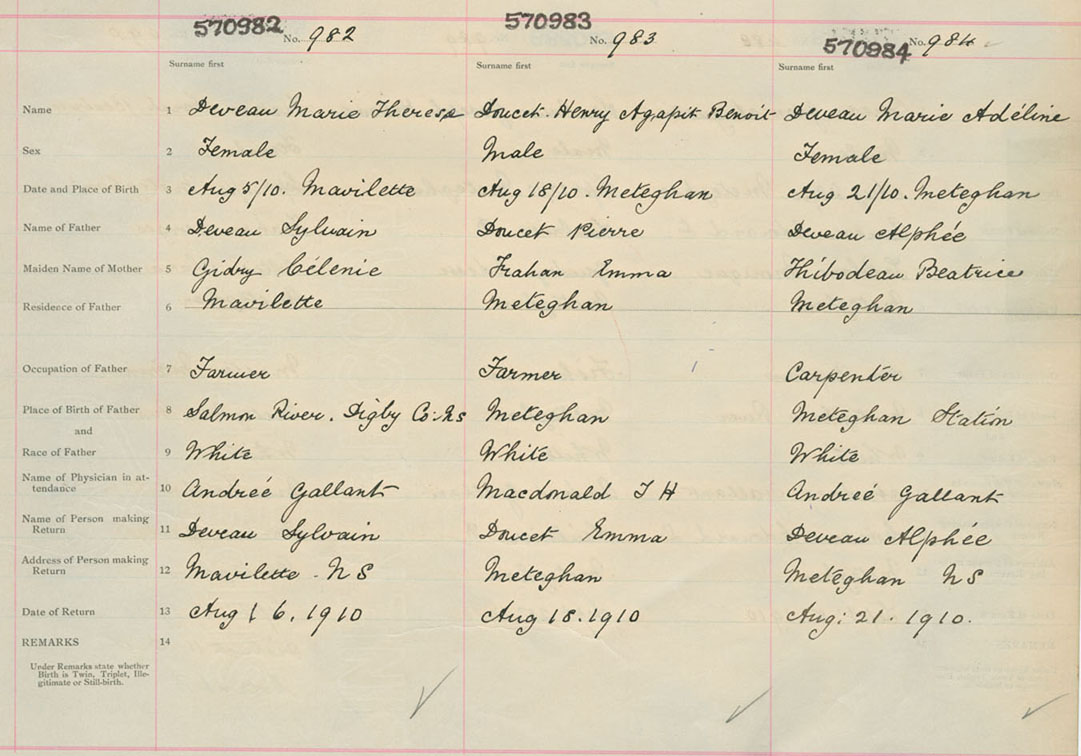 570982 No. 982 570983 No. 983 570984 No. 984
Surname first Surname first Surname first
Name 1 Deveau Marie Therese Doucet. Henry Agapit Benoit Deveau Marie Adéline
Sex 2 Female Male Female
Date and Place of Birth 3 Aug 5/10. Mavilette Aug 18/10. Meteghan Aug 21/10. Meteghan
Name of Father 4 Deveau Sylvain Doucet Pierre Deveau Alphée
Maiden Name of Mother 5 Gidry Célenie Trahan Emma Thibodeau Beatrice
Residence of Father 6 Mavilette Meteghan Meteghan
Occupation of Father 7 Farmer Farmer Carpenter
Place of Birth of Father 8 Salmon River. Digby Co. NS Meteghan Meteghan Station
and
Race of Father 9 White White White
Name of Physician in at-
tendance 10 Andreé Gallant Macdonald J H Andreé Gallant
Name of Person making
Return 11 Deveau Sylvain Doucet Emma Deveau Alphée
Address of Person making
Return 12 Mavilette. NS Meteghan Meteghan NS
Date of Return 13 Aug 16. 1910 Aug 18. 1910 Aug: 21. 1910.
REMARKS 14
Under Remarks state whether
Birth is Twin, Triplet, Ille-
gitimate or Still-birth.